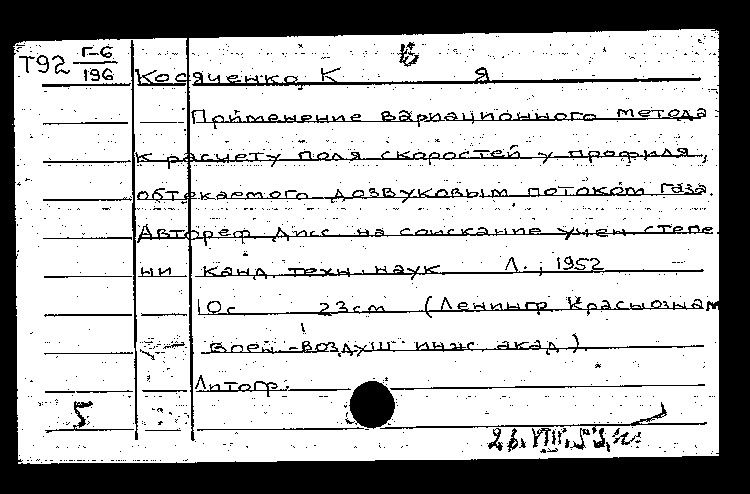 В
Т92 Г-6
196
Косяченко, К Я
Применение вариационного метода
к расчету поля скоростей у профиля,
обтекаемого дозвуковым потоком газа.
Автореф. дисс. на соискание учен степе
ни канд. техн. наук. Л., 1952
10с 23см (Ленингр Краснознам
воен-воздуш инж. акад.).
Литогр.
5
26.VIII.53